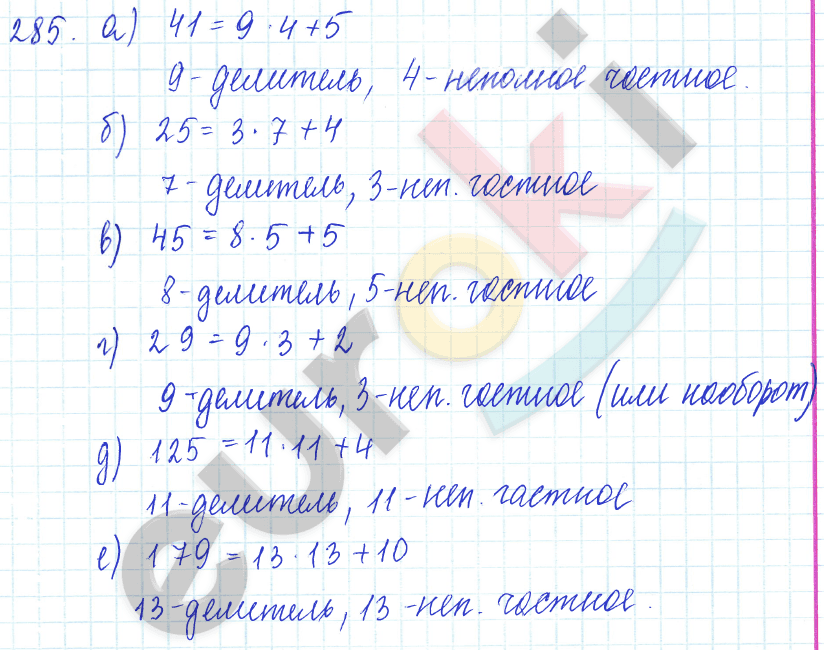 285. а) 41 = 9 · 4 + 5
9 - делитель, 4 - неполное частное.
б) 25 = 3 · 7 + 4
7 - делитель, 3 - неп. частное
в) 45 = 8 · 5 + 5
8 - делитель, 5 - неп. частное
г) 29 = 9 · 3 + 2
9 - делитель, 3 - неп. частное (или наоборот)
д) 125 = 11 · 11 + 4
11 - делитель, 11 - неп. частное
е) 179 = 13 · 13 + 10
13 - делитель, 13 - неп. частное.
euroki